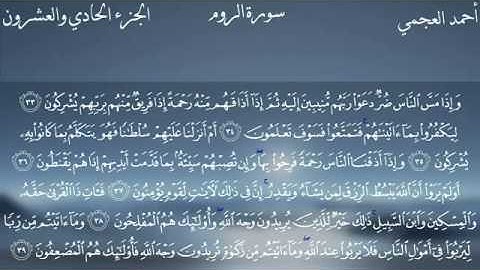 أحمد العجمي
سورة الروم
الجزء الحادي والعشرون
وَإِذَا مَسَّ ٱلنَّاسَ ضُرٌّ دَعَوْا۟ رَبَّهُم مُّنِيبِينَ إِلَيْهِ ثُمَّ إِذَآ أَذَاقَهُم مِّنْهُ رَحْمَةً إِذَا فَرِيقٌ مِّنْهُم بِرَبِّهِمْ يُشْرِكُونَ ٣٣
لِيَكْفُرُوا۟ بِمَآ ءَاتَيْنَٰهُمْ فَتَمَتَّعُوا۟ فَسَوْفَ تَعْلَمُونَ ٣٤ أَمْ أَنزَلْنَا عَلَيْهِمْ سُلْطَٰنًا فَهُوَ يَتَكَلَّمُ بِمَا كَانُوا۟ بِهِۦ
يُشْرِكُونَ ٣٥ وَإِذَآ أَذَقْنَا ٱلنَّاسَ رَحْمَةً فَرِحُوا۟ بِهَا وَإِن تُصِبْهُمْ سَيِّئَةٌۢ بِمَا قَدَّمَتْ أَيْدِيهِمْ إِذَا هُمْ يَقْنَطُونَ ٣٦
أَوَلَمْ يَرَوْا۟ أَنَّ ٱللَّهَ يَبْسُطُ ٱلرِّزْقَ لِمَن يَشَآءُ وَيَقْدِرُ إِنَّ فِى ذَٰلِكَ لَءَايَٰتٍ لِّقَوْمٍ يُؤْمِنُونَ ٣٧ فَـَٔاتِ ذَا ٱلْقُرْبَىٰ حَقَّهُۥ
وَٱلْمِسْكِينَ وَٱبْنَ ٱلسَّبِيلِ ذَٰلِكَ خَيْرٌ لِّلَّذِينَ يُرِيدُونَ وَجْهَ ٱللَّهِ وَأُو۟لَٰٓئِكَ هُمُ ٱلْمُفْلِحُونَ ٣٨ وَمَآ ءَاتَيْتُم مِّن رِّبًا
لِّيَرْبُوَا۟ فِىٓ أَمْوَٰلِ ٱلنَّاسِ فَلَا يَرْبُوا۟ عِندَ ٱللَّهِ وَمَآ ءَاتَيْتُم مِّن زَكَوٰةٍ تُرِيدُونَ وَجْهَ ٱللَّهِ فَأُو۟لَٰٓئِكَ هُمُ ٱلْمُضْعِفُونَ ٣٩